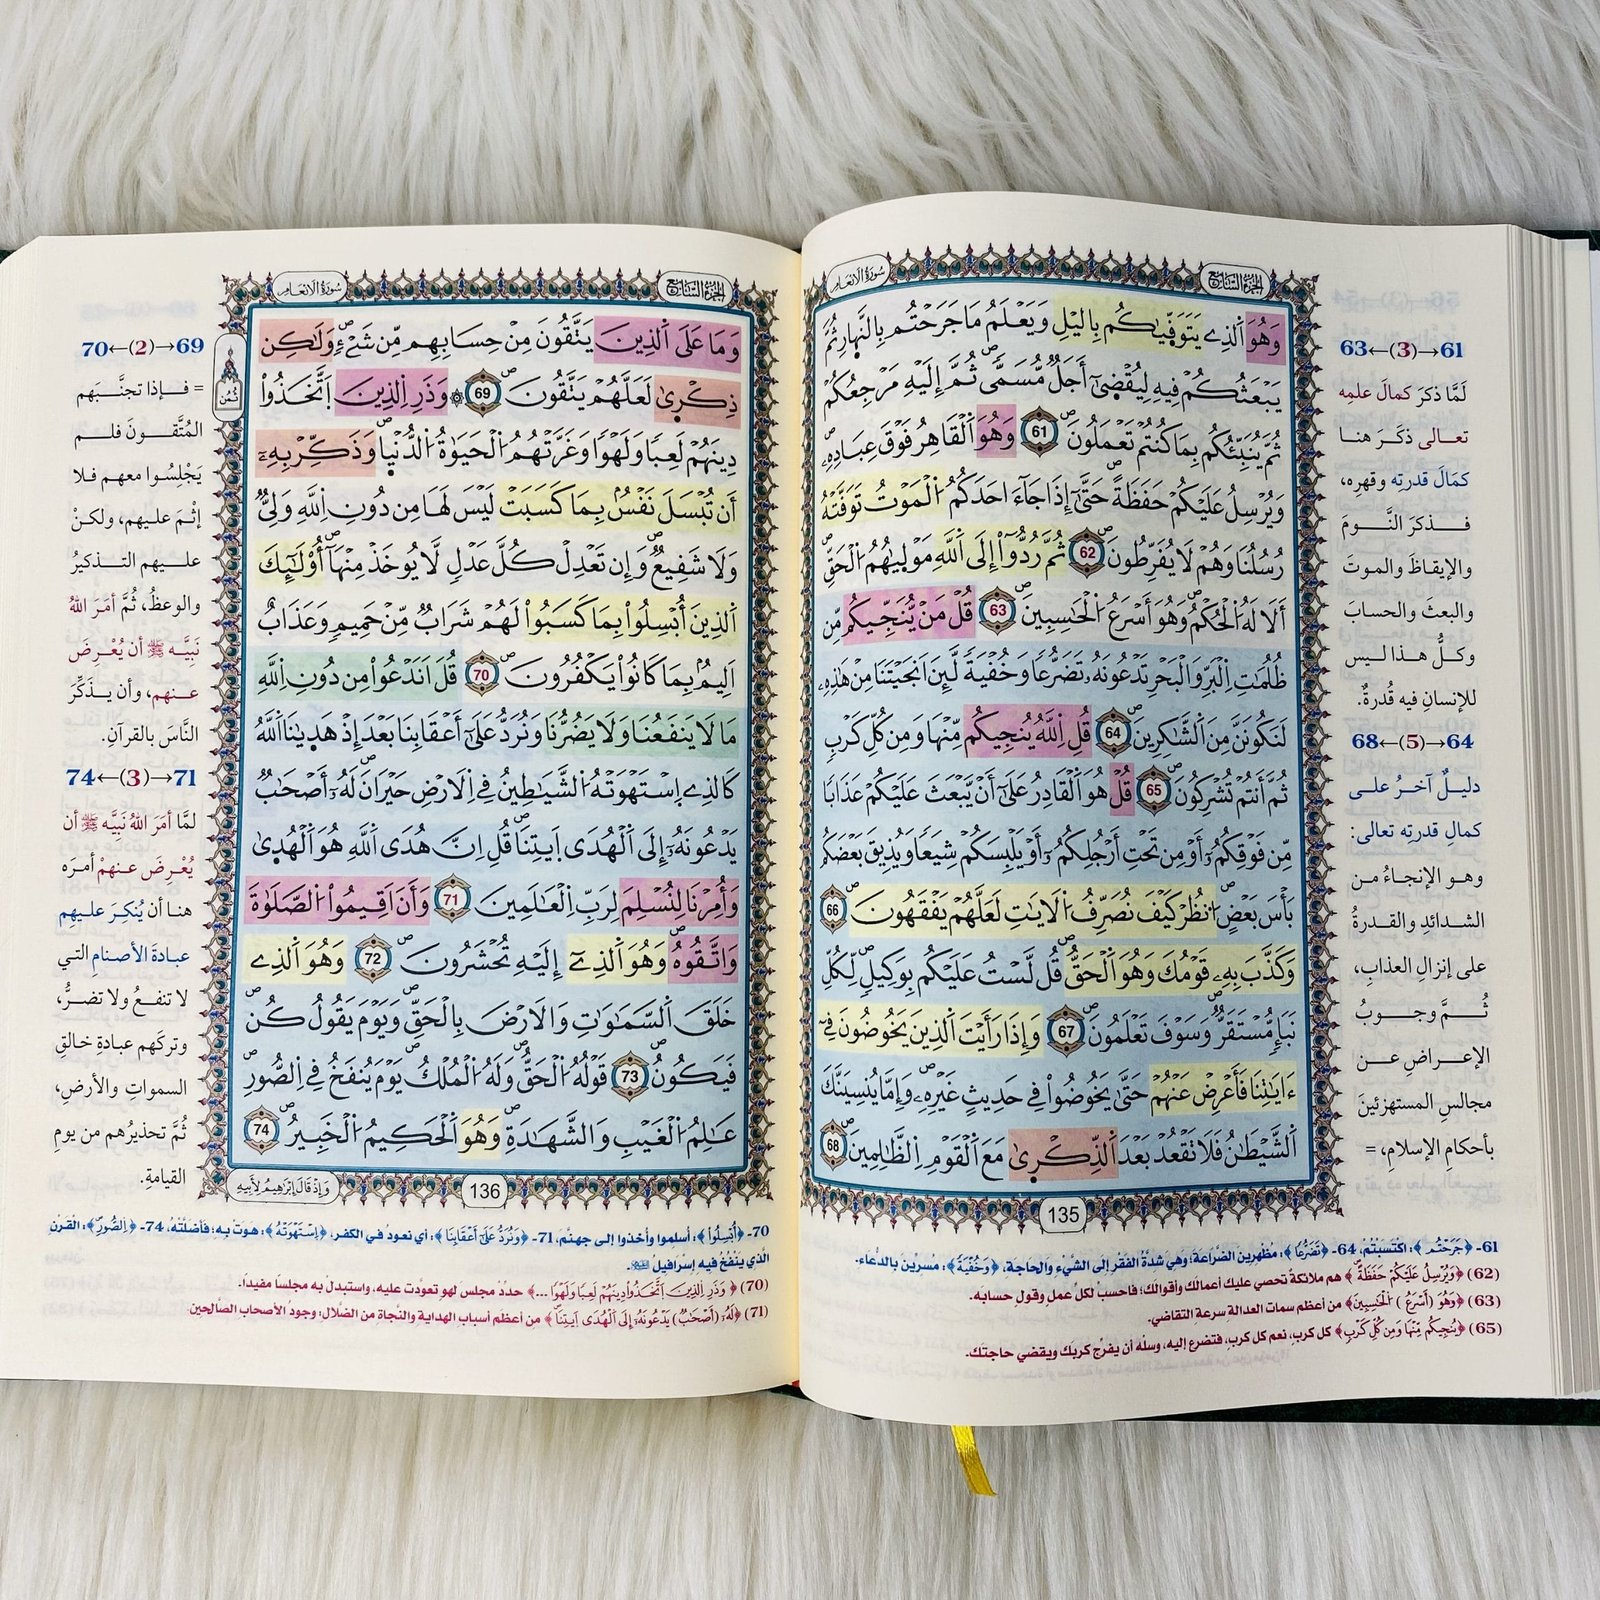 سُورَةُ الأَنْعَامِ
الجُزْءُ السَّابِعُ
وَهُوَ اَلذِے يَتَوَفّ۪يٰكُم بِالَيْلِ وَيَعْلَمُ مَا جَرَحْتُم بِالنَّه۪ارِ ثُمَّ
يَبْعَثُكُمْ فِيهِ لِيُقْض۪يٰٓ أَجَلٞ مُّسَمّيٗۖ ثُمَّ إِلَيْهِ مَرْجِعُكُمْ
ثُمَّ يُنَبِّئُكُم بِمَا كُنتُمْ تَعْمَلُونَۖ 61 وَهُوَ اَلْقَاهِرُ فَوْقَ عِبَادِهِۦۖ
وَيُرْسِلُ عَلَيْكُمْ حَفَظَةًۖ حَتَّىٰٓ إِذَا جَآءَ احَدَكُمُ اُلْمَوْتُ تَوَفَّتْهُ
رُسُلُنَا وَهُمْ لَا يُفَرِّطُونَۖ 62 ثُمَّ رُدُّوٓاْ إِلَى اَللَّهِ مَوْل۪يٰهُمُ اُلْحَقِّۖ
أَلَا لَهُ اُلْحُكْمُۖ وَهُوَ أَسْرَعُ اُلْحَٰسِبِينَۖ 63 قُلْ مَنْ يُّنَجِّيكُم مِّن
ظُلُمَٰتِ اِلْبَرِّ وَالْبَحْرِ تَدْعُونَهُۥ تَضَرُّعاٗ وَخُفْيَةٗ لَّئِنَ اَنجَيْتَنَا مِنْ هَٰذِهِۦ
لَنَكُونَنَّ مِنَ اَلشَّٰكِرِينَۖ 64 قُلِ اِللَّهُ يُنجِيكُم مِّنْهَا وَمِن كُلِّ كَرْبٖ
ثُمَّ أَنتُمْ تُشْرِكُونَۖ 65 قُلْ هُوَ اَلْقَادِرُ عَلَىٰٓ أَنْ يَّبْعَثَ عَلَيْكُمْ عَذَاباٗ
مِّن فَوْقِكُمُۥٓ أَوْ مِن تَحْتِ أَرْجُلِكُمُۥٓ أَوْ يَلْبِسَكُمْ شِيَعاٗ وَيُذِيقَ بَعْضَكُم
بَأْسَ بَعْضٍۖ اُنظُرْ كَيْفَ نُصَرِّفُ اُلَايَٰتِ لَعَلَّهُمْ يَفْقَهُونَۖ 66
وَكَذَّبَ بِهِۦ قَوْمُكَ وَهُوَ اَلْحَقُّۖ قُل لَّسْتُ عَلَيْكُم بِوَكِيلٖۖ لِّكُلِّ
نَبَإٖ مُّسْتَقَرّٞۖ وَسَوْفَ تَعْلَمُونَۖ 67 وَإِذَا رَأَيْتَ اَلذِينَ يَخُوضُونَ فِےٓ
ءَايَٰتِنَا فَأَعْرِضْ عَنْهُمْ حَتَّىٰ يَخُوضُواْ فِے حَدِيثٍ غَيْرِهِۦۖ وَإِمَّا يُنسِيَنَّكَ
اَلشَّيْطَٰنُ فَلَا تَقْعُدْ بَعْدَ اَلذِّكْر۪يٰ مَعَ اَلْقَوْمِ اِلظَّٰلِمِينَۖ 68
135
63←(3)→61
لَمَّا ذكَرَ كمالَ علمِه
تعالى ذكَرَ هنا
كمَالَ قدرتِه وقهرِه،
فذكرَ النَّومَ
والإيقاظَ والموتَ
والبعثَ والحسابَ
وكلُّ هذا ليس
للإنسانِ فيه قُدرةٌ.
68←(5)→64
دليلٌ آخرُ على
كمالِ قدرتِه تعالى:
وهو الإنجاءُ من
الشدائدِ والقدرةُ
على إنزالِ العذابِ،
ثُمَّ وجوبُ
الإعراضِ عن
مجالسِ المستهزئينَ
بأحكامِ الإسلامِ، =
61- ﴿جَرَحْتُم﴾: اكْتَسَبْتُمْ، 64- ﴿تَضَرُّعاٗ﴾: مظهرين الضراعة؛ وهي شدة الفقر إلى الشيء والحاجة، ﴿وَخُفْيَةٗ﴾: مسرين بالدعاء.
(62) ﴿وَيُرْسِلُ عَلَيْكُمْ حَفَظَةً﴾ هم ملائكة تحصي عليك أعمالك وأقوالك؛ فاحسب لكل عمل وقول حسابه.
(63) ﴿وَهُوَ أَسْرَعُ اُلْحَٰسِبِينَ﴾ من أعظم سمات العدالة سرعة التقاضي.
(65) ﴿يُنجِيكُم مِّنْهَا وَمِن كُلِّ كَرْبٖ﴾ كل كرب، نعم كل كرب، فتضرع إليه، وسله أن يفرج كربك ويقضي حاجتك.
سُورَةُ الأَنْعَامِ
الجُزْءُ السَّابِعُ
وَمَا عَلَى اَلذِينَ يَتَّقُونَ مِنْ حِسَابِهِم مِّن شَےْءٖۖ وَلَٰكِن
ذِكْر۪يٰ لَعَلَّهُمْ يَتَّقُونَۖ 69 ۞ وَذَرِ اِلذِينَ اَتَّخَذُواْ
دِينَهُمْ لَعِباٗ وَلَهْواٗ وَغَرَّتْهُمُ اُلْحَيَوٰةُ اُلدُّنْي۪اۖ وَذَكِّرْ بِهِۦٓ
أَن تُبْسَلَ نَفْسُۢ بِمَا كَسَبَتْ لَيْسَ لَهَا مِن دُونِ اِللَّهِ وَلِيّٞ
وَلَا شَفِيعٞۖ وَإِن تَعْدِلْ كُلَّ عَدْلٖ لَّا يُوخَذْ مِنْهَآۖ أُوْلَٰٓئِكَ
اَلذِينَ أُبْسِلُواْ بِمَا كَسَبُواْ لَهُمْ شَرَابٞ مِّنْ حَمِيمٖ وَعَذَابٌ
اَلِيمُۢ بِمَا كَانُواْ يَكْفُرُونَۖ 70 قُلَ اَنَدْعُواْ مِن دُونِ اِللَّهِ
مَا لَا يَنفَعُنَا وَلَا يَضُرُّنَا وَنُرَدُّ عَلَىٰٓ أَعْقَابِنَا بَعْدَ إِذْ هَد۪يٰنَا اَللَّهُ
كَالذِے اِسْتَهْوَتْهُ اُلشَّيَٰطِينُ فِے اِلَارْضِ حَيْرَانَۖ لَهُۥٓ أَصْحَٰبٞ
يَدْعُونَهُۥٓ إِلَى اَلْهُدَى اَيتِنَاۖ قُلِ اِنَّ هُدَى اَللَّهِ هُوَ اَلْهُد۪يٰ
وَأُمِرْنَا لِنُسْلِمَ لِرَبِّ اِلْعَٰلَمِينَ 71 وَأَنَ اَقِيمُواْ اُلصَّلَوٰةَ
وَاتَّقُوهُۖ وَهُوَ اَلذِےٓ إِلَيْهِ تُحْشَرُونَۖ 72 وَهُوَ اَلذِے
خَلَقَ اَلسَّمَٰوَٰتِ وَالَارْضَ بِالْحَقِّۖ وَيَوْمَ يَقُولُ كُن
فَيَكُونُۖ 73 قَوْلُهُ اُلْحَقُّۖ وَلَهُ اُلْمُلْكُ يَوْمَ يُنفَخُ فِے اِلصُّورِۖ
عَٰلِمُ اُلْغَيْبِ وَالشَّهَٰدَةِۖ وَهُوَ اَلْحَكِيمُ اُلْخَبِيرُۖ 74
136
وَإِذْ قَالَ إِبْرَٰهِيمُ لِأَبِيهِ
ثُمُن
70←(2)→69
= فإذا تجنَّبَهم
المُتَّقونَ فلم
يَجْلِسُوا معهم فلا
إثْمَ عليهم، ولكنْ
عليهم التذكيرُ
والوعظُ، ثُمَّ أمَرَ اللهُ
نَبِيَّه ﷺ أن يُعْرِضَ
عنهم، وأن يذَكِّرَ
النَّاسَ بالقرآنِ.
74←(3)→71
لمَّا أمَرَ اللهُ نَبِيَّه ﷺ أن
يُعْرِضَ عنهمْ أمرَه
هنا أن يُنكِرَ عليهِم
عبادةَ الأصنامِ التي
لا تنفعُ ولا تضرُّ،
وتركَهم عبادةِ خالقِ
السمواتِ والأرضِ،
ثُمَّ تحذيرُهم من يومِ
القيامةِ.
70- ﴿أُبْسِلُواْ﴾: أسلموا وأخذوا إلى جهنم، 71- ﴿وَنُرَدُّ عَلَىٰٓ أَعْقَابِنَا﴾: أي نعود في الكفر، ﴿اِسْتَهْوَتْهُ﴾: هوت به؛ فأضلته، 74- ﴿اِلصُّورِ﴾: القرن
الذي ينفخ فيه إسرافيل
(70) ﴿وَذَرِ اِلذِينَ اَتَّخَذُواْ دِينَهُمْ لَعِباٗ وَلَهْواٗ ...﴾ حدد مجلس لهو تعودت عليه، واستبدل به مجلساً مفيداً.
(71) ﴿لَهُۥٓ أَصْحَٰبٞ يَدْعُونَهُۥٓ إِلَى اَلْهُدَى اَيتِنَا﴾ من أعظم أسباب الهداية والنجاة من الضلال: وجود الأصحاب الصالحين